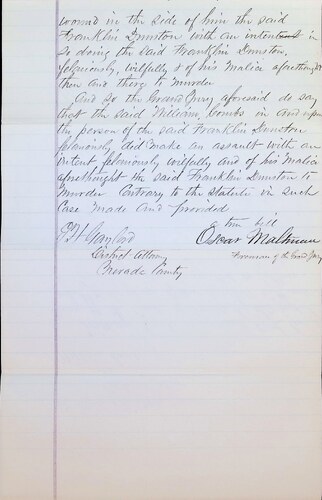 wound in the side of him the said
Franklin Dunston with an intent in
so doing the said Franklin Dunston,
feloniously, wilfully & of his Malice aforethought
then and there to Murder
And so the Grand Jury aforesaid do say
that the said William Combs in and upon
the person of the said Franklin Dunston
feloniously did make an assault with an
intent feloniously wilfully and of his Malice
aforethought the said Franklin Dunston to
Murder Contrary to the statute in such
Case Made and provided
a true bill
Oscar
District Attorney
Foreman of the Grand Jury
Nevada County